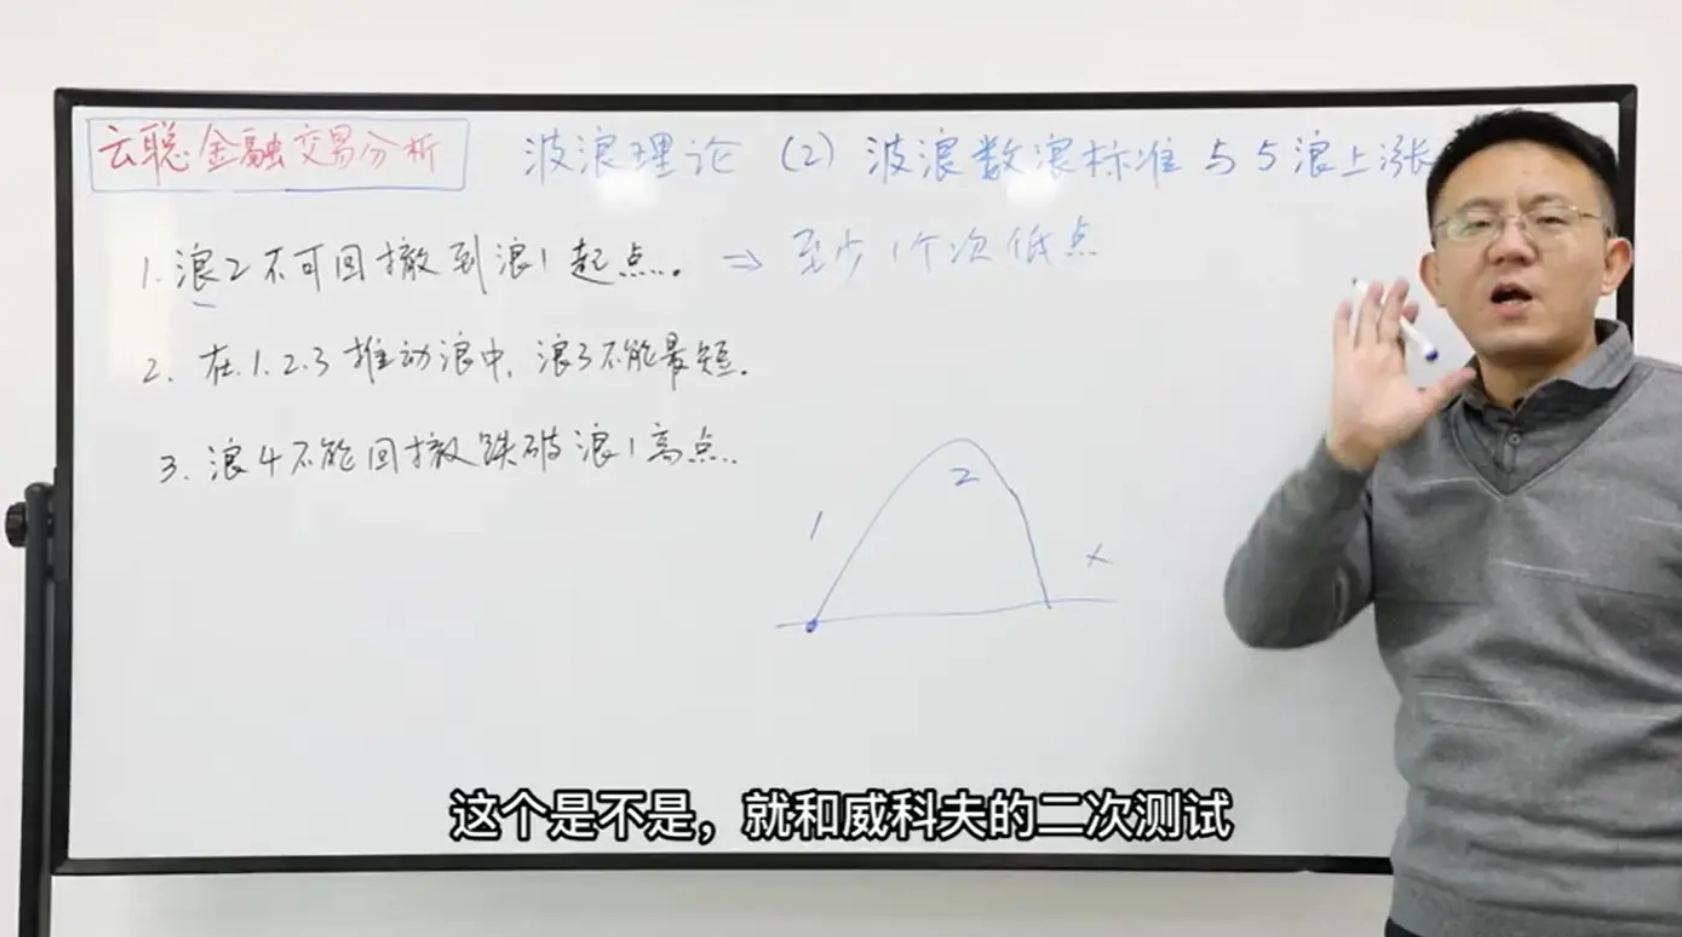 云聪金融交易分析
波浪理论 (2) 波浪数浪标准与5浪上涨
1. 浪2不可回撤到浪1起点. ⇒ 至少1个次低点
2. 在1.2.3推动浪中,浪3不能最短.
3. 浪4不能回撤跌破浪1高点..
1
2
×
这个是不是，就和威科夫的二次测试